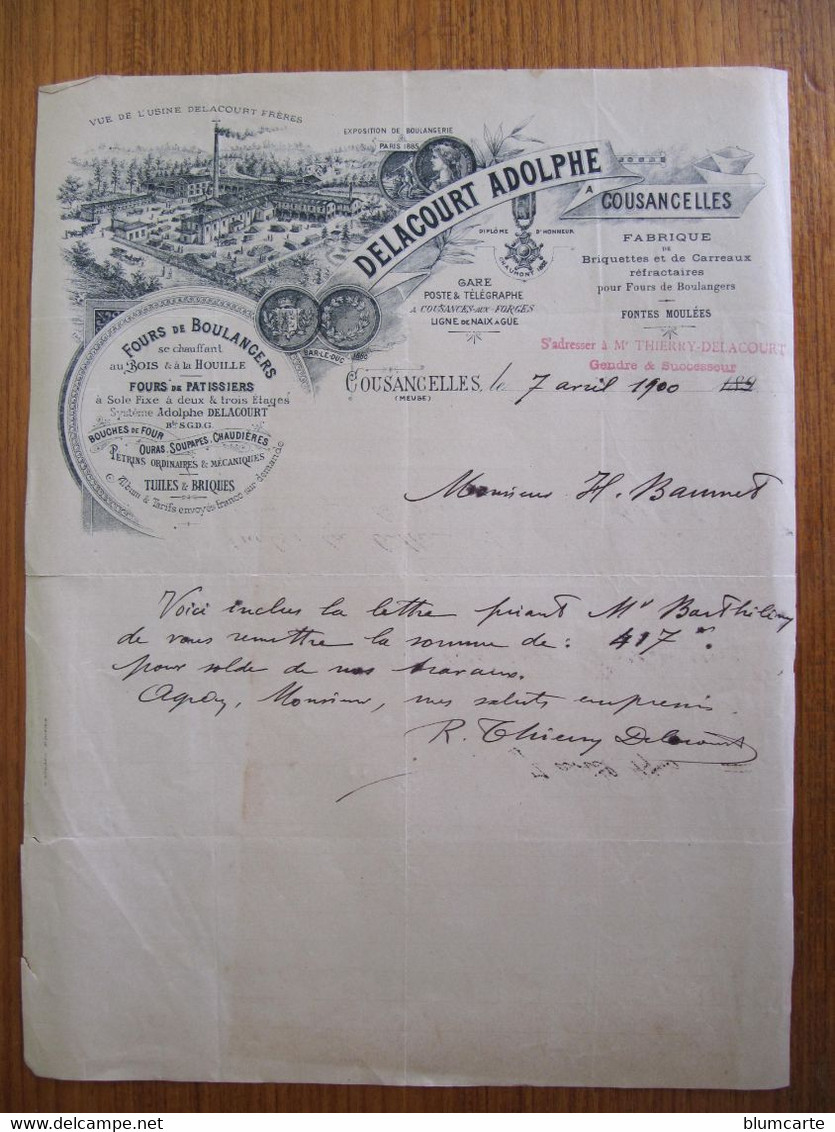 VUE DE L'USINE DELACOURT FRÈRES
EXPOSITION DE BOULANGERIE
PARIS 1885
DELACOURT ADOLPHE
A
COUSANCELLES
DIPLÔME D'HONNEUR
CHAUMONT
FABRIQUE
DE
Briquettes et de Carreaux
réfractaires
pour Fours de Boulangers
FONTES MOULÉES
GARE
POSTE & TÉLÉGRAPHE
A COUSANCES-AUX-FORGES
LIGNE DE NAIX A GUE
BAR-LE-DUC 1880
S'adresser à Mr THIERRY-DELACOURT
Gendre & Successeur
FOURS DE BOULANGERS
se chauffant
au BOIS & à la HOUILLE
FOURS DE PATISSIERS
à Sole Fixe à deux & trois Etages
Système Adolphe DELACOURT
Bté S.G.D.G.
BOUCHES DE FOUR
OURAS, SOUPAPES, CHAUDIÈRES
PETRINS ORDINAIRES & MÉCANIQUES
TUILES & BRIQUES
Album & Tarifs envoyés franco sur demande
COUSANCELLES, le 7 avril 1900 189
(MEUSE)
Monsieur H.
Voici inclus la lettre priant Mr
de vous remettre la somme de: 417 f.
pour solde de nos travaux.
Agréez, Monsieur, mes saluts empressés
R. Thierry Delacourt
blumcarte